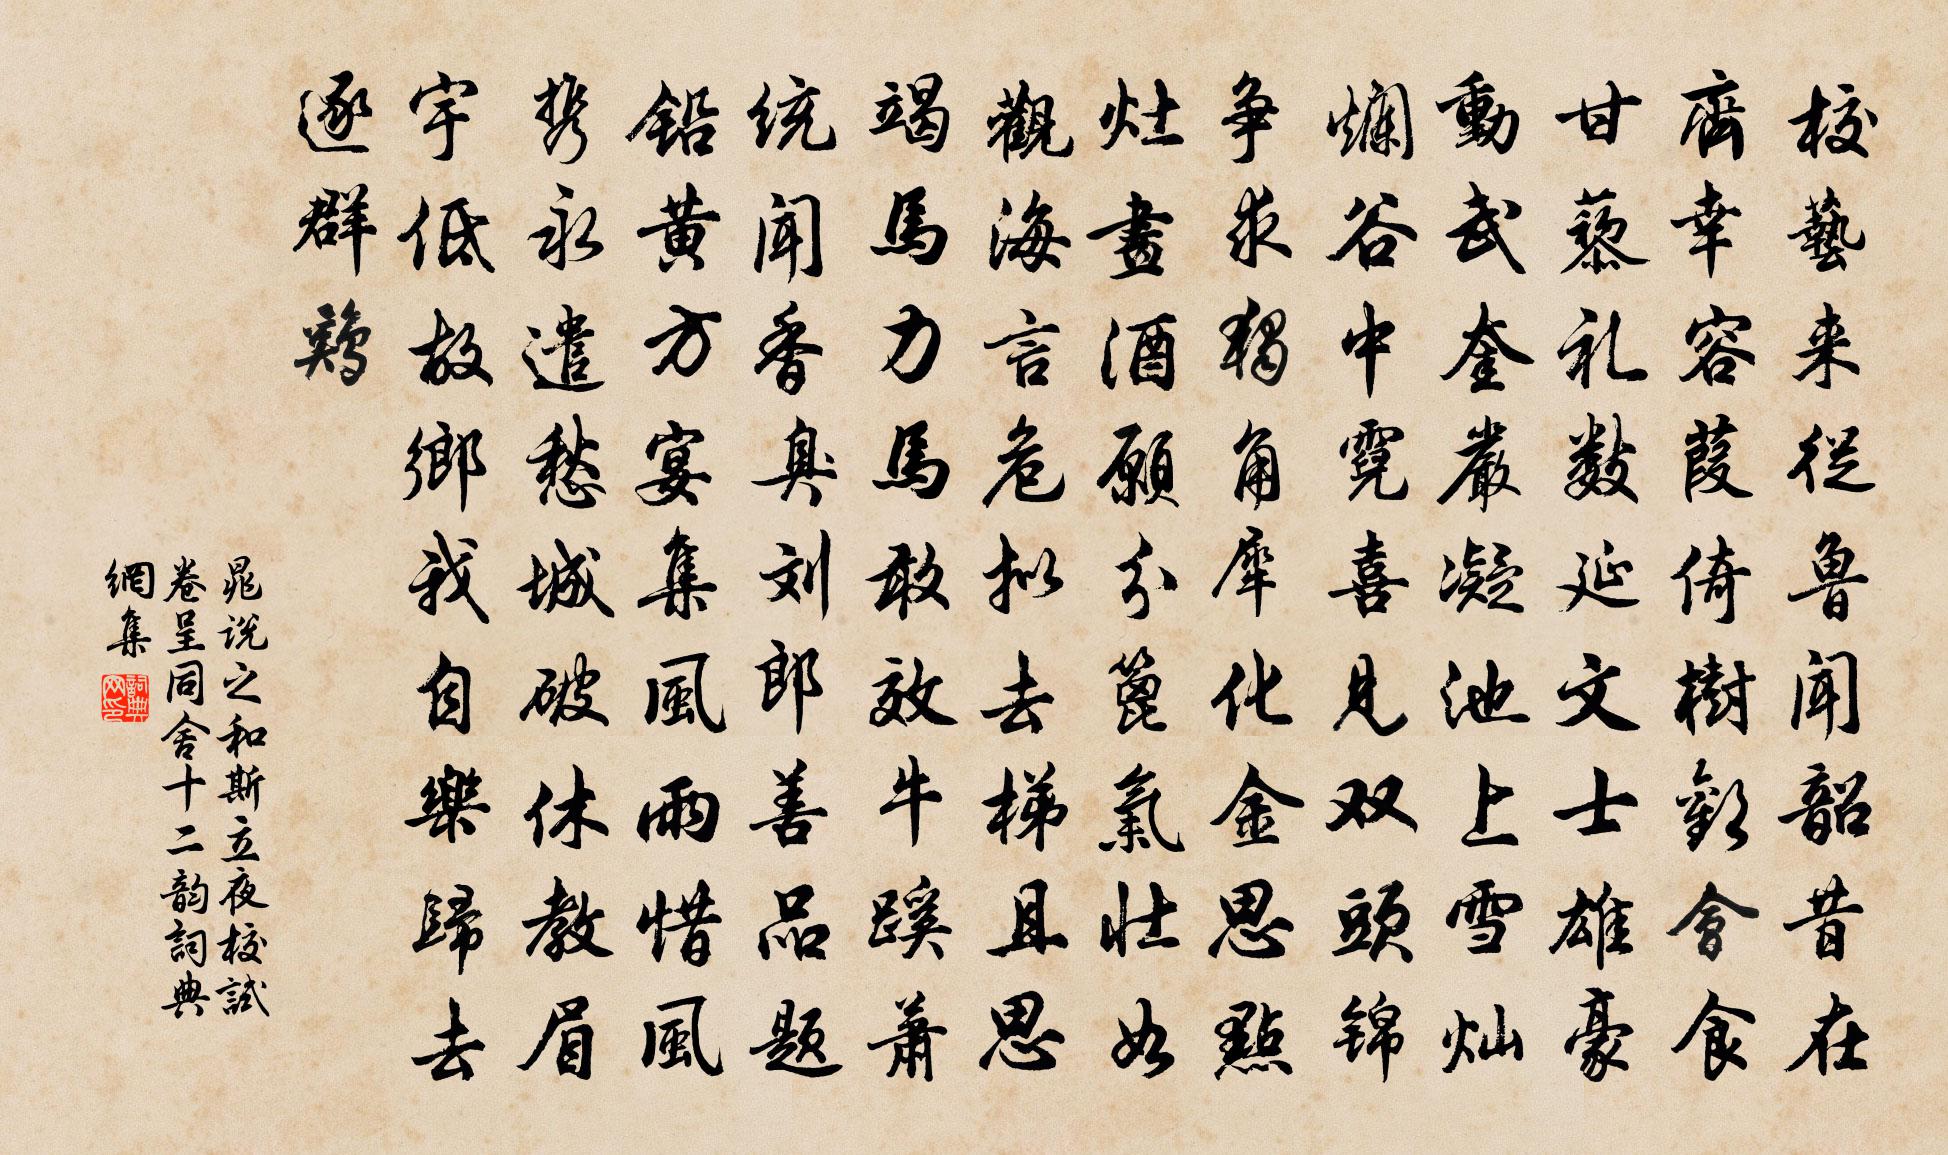 校藝来従魯聞韶昔在
齊幸容葭倚樹歡會食
甘藜礼数延文士雄豪
動武奎嚴凝池上雪灿
爛谷中霓喜見双頭锦
争求獨角犀化金思點
灶畫酒願分篦氣壮如
觀海言危拟去梯且思
竭馬力馬敢效牛蹊蕭
统聞香臭刘郎善品题
鉛黄方宴集風雨惜風
携永遣愁城破休教眉
宇低故鄉我自樂歸去
逐群鷄
晁说之和斯立夜校試
卷呈同舍十二韵詞典
網集
詞典网印